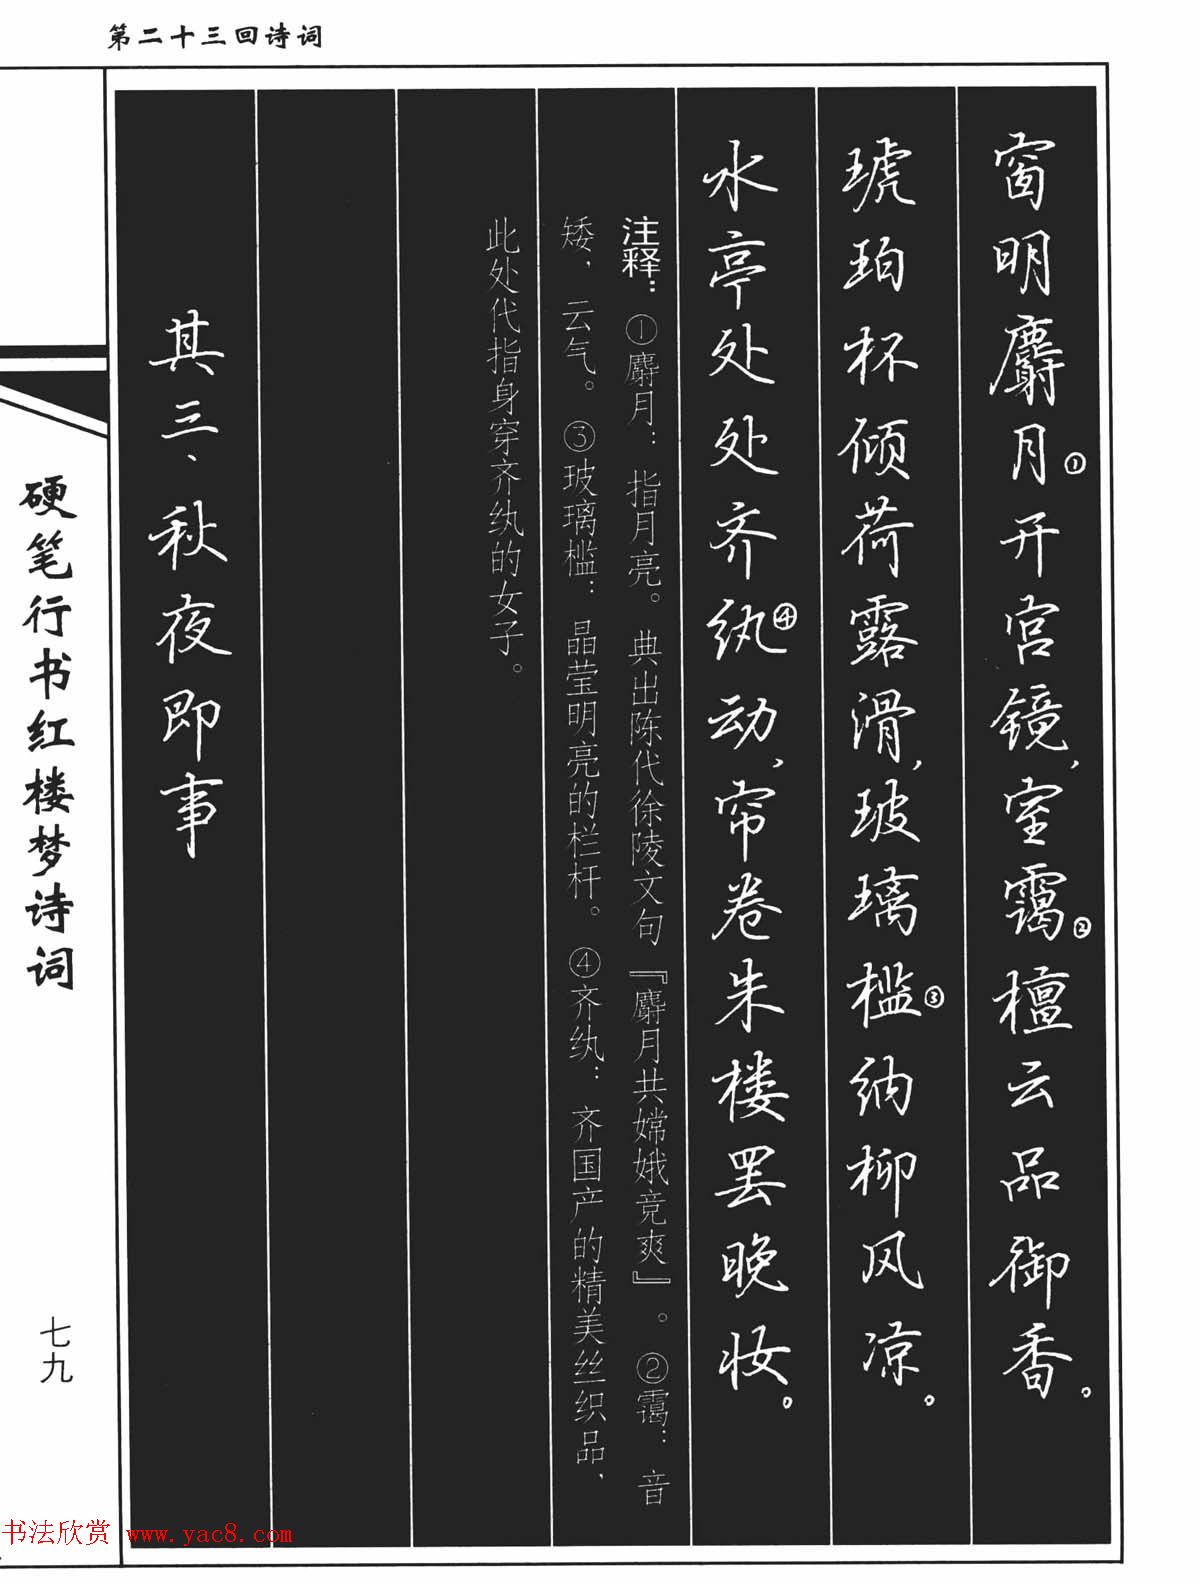 第二十三回诗词
窗明麝月①开宫镜，室霭②檀云品御香。
琥珀杯倾荷露滑，玻璃槛③纳柳风凉。
水亭处处齐纨④动，帘卷朱楼罢晚妆。
注释：①麝月：指月亮。典出陈代徐陵文句『麝月共嫦娥竞爽』。②霭：音
矮，云气。③玻璃槛：晶莹明亮的栏杆。④齐纨：齐国产的精美丝织品，
此处代指身穿齐纨的女子。
其三、秋夜即事
硬笔行书红楼梦诗词
七九
书法欣赏 www.yac8.com